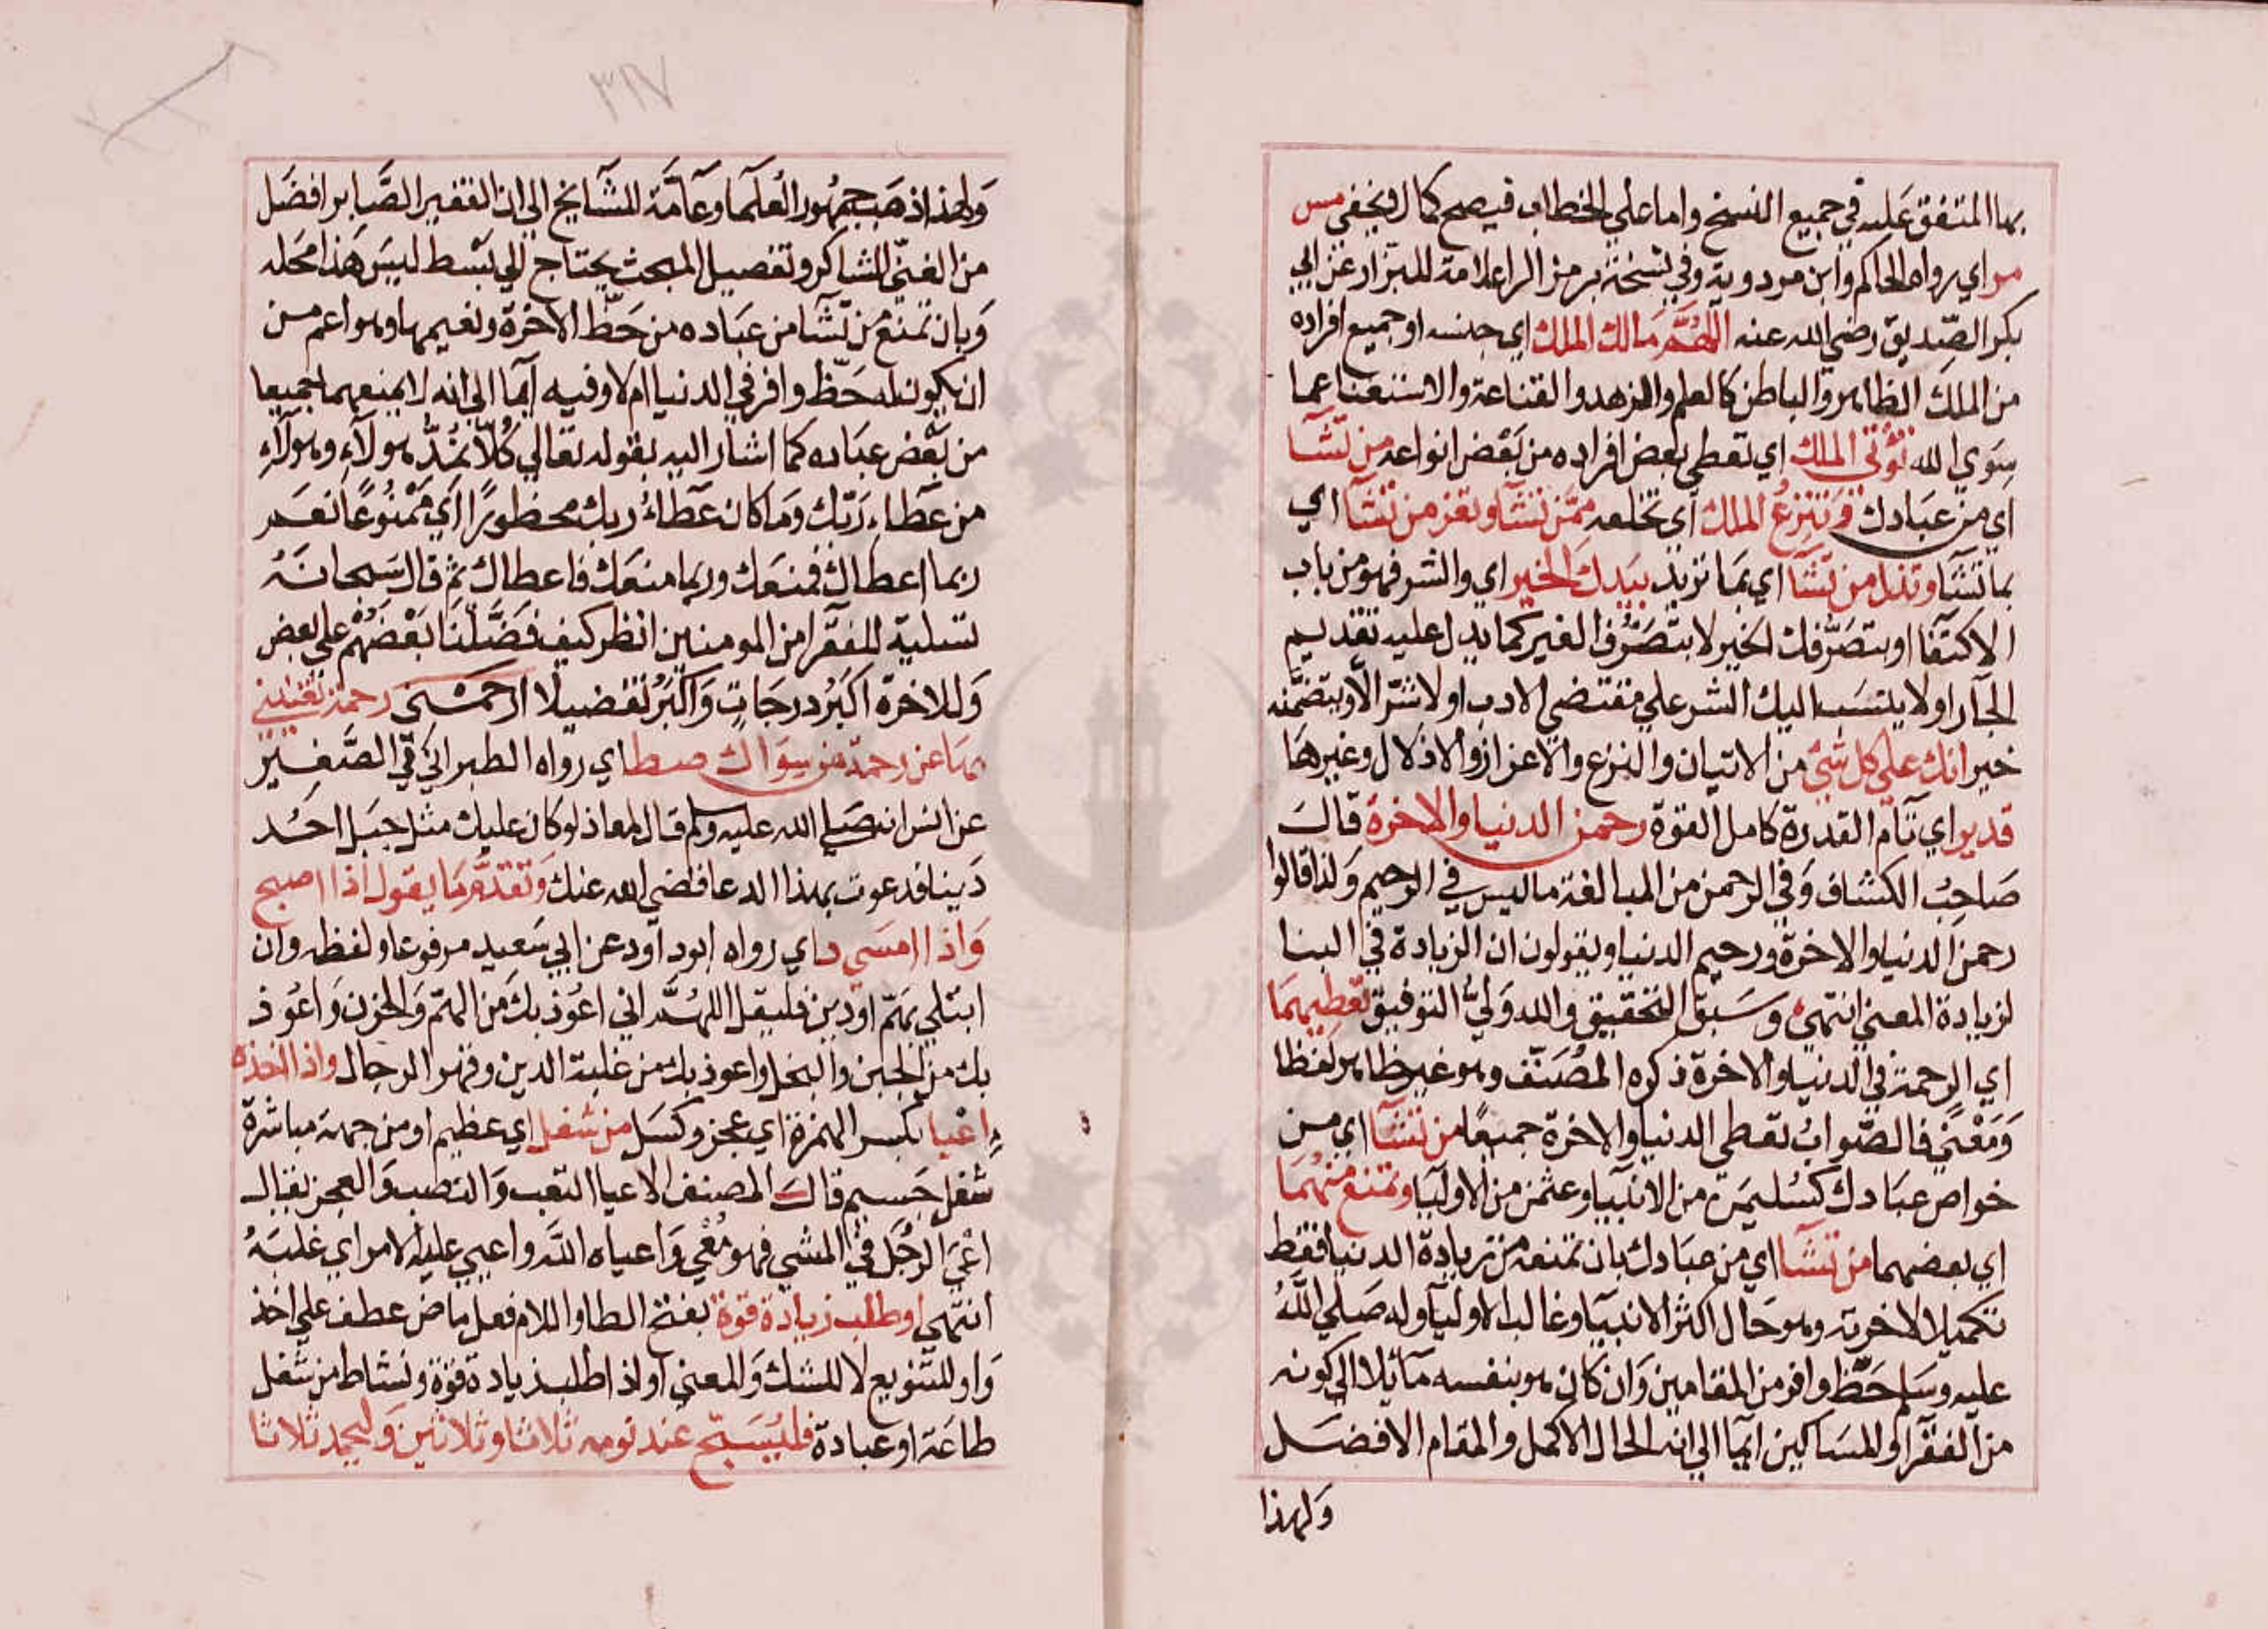 بها المتفق عليه في جميع النسخ واما على الخطاب فيصح كمال لا يخفى مس
مر اي رواه الحاكم وابن مردوية وفي نسخة برمز الراعلامة للبزار عن ابي
بكر الصِّديق رضي الله عنه اللهُمَّ مَالك الملك اي جنسه او جميع افراده
من الملك الظاهر والباطن كالعلم والزهد والقناعة والاستغنا عما
سِوَي الله تُؤتي الملك اي تعطي بعض افراده من بَعْض انواعه من تَشآ
اي من عبَادك وَتَنزِعُ الملك اي تخلعه مِمَّن تشَآ وتعز من تشَآ اي
بما تشَآ وتذل من تشَآ اي بمَا تريد بيَدِك الخير اي والشر فهو من باب
الاكتفا او بتصَرّفك الخير لا بتصَرُّف الغير كما يدل عليه تقديم
الجآر او لا ينسَب اليك الشر علي مقتضي الادب او لا شرّ الّا ويتضمّنه
خير انك علي كل شَيْ من الاتيان والنزع والاعزاز والاذلال وغيرهَا
قدير اي تَام القدرة كامل القوة رحمن الدنيا والاخرة قالَ
صَاحِبُ الكشاف وَفي الرحمن من المبالغة ما ليس في الرحيم وَلذا قالوا
رحمن الدنيا والاخرة ورحيم الدنيا ويقولون ان الزيادة في البنا
لزيادة المعنى انتهى وسَبق التحقيق والله وَليُّ التوفيق تعطيهمَا
اي الرحمة في الدنيا والاخرة ذكره المُصَنّف وهو غير ظاهر لفظا
وَمَعْنًي فالصَّوابُ تعطي الدنيا والاخرة جميعًا من تشَآ اي من
خواص عبَادك كسُليمَن من الانبيَا وعثمن من الاوليَا وتمنع منهُمَا
اي بعضهما من تشَآ اي من عبَادك بان تمنعه من زيادة الدنيا فقط
تكميلا لاخرته وهو حَال اكثر الانبيَا وغالب الاوليَا وله صَلي اللهُ
عليه وسَلم حَظ وافر من المقامين وَان كان هو بنفسه مآئلا الي كونه
من الفقرآ والمسَاكين ايمآ الي انه الحال الاكمل والمقام الافضَل
وَلهذا
وَلهذا ذهَب جمهُور العُلمَا وعَامّة المشَآيخ الي ان الفقير الصَّابر افضَل
من الغنيّ الشاكر وتفصيل المبحث يحتاج الي بَسْط ليسَ هَذا محَله
وَبان تمنع من تشَآ من عبَاده من حَظّ الاخرة ونعيمها وهو اعم من
ان يكون له حَظّ وافر في الدنيا ام لا وفيه ايمآ الي انه لا يمنعهما جميعا
من بَعْض عبَاده كما اشار اليه بقوله تعالي كُلًا نمُدُّ هولآءِ وهولآءِ
من عَطاءِ رَبّك وَمَا كان عَطاءُ ربك محظورًا اَي مَمْنوُعًا نعَم
ربما اعطاك فمنعَك وربما منعَك فاعطاك ثم قال سَبحانَهُ
تسلية للفقرآ من المومنين انظر كيف فَضَّلْنَا بَعْضهُمْ علي بعض
وَللاخرة اكبَرُ درجَاتٍ وَاكْبَرُ تفضيلا ارحمني رحمة تغنيني
بهَا عن رحمة من سِوَاك صط اي رواه الطبراني في الصَّغِير
عن انس انه صَلي الله عليه وسلم قال لمعاذ لو كان عليك مثل جبَل احُد
دَينا فدعوت بهذا الدعا قضي الله عنك وَتقدّم مَا يقول اذا اصبح
وَاذا امسَي د اي رواه ابو دآود عن ابي سَعيد مرفوعا ولفظه وان
ابتلي بهَمّ او دين فليقل اللهُمَّ اني اعوُذ بك من الهَمّ وَالحزن وَاعوُذ
بك من الجبن والبخل واعوذ بك من غلبة الدين وقهر الرجال واذا اخذه
اِعْيا بكسر الهمزة اي عجز وكسَل من شغل اي عظيم او من جهة مباشرة
شغل جَسيم قالَ المصنف الاعيا التعب وَالنصَب وَالعجز يقال
اعْيَ الرجُل في المشي فهو مُعْي وَاعياه اللهُ واعيي عليه الامر اي غلبَهُ
انتهى او طلب زيادة قوة بفتح الطا واللام فعل ماض عطف علي اخذ
وَاو للتنويع لا للشك وَالمعني او اذا طلب زيادة قوة ونشاط من شغل
طاعَة او عبادة فليُسَبّح عند نومه ثلاثا وثلاثين وَليحمد ثلاثا